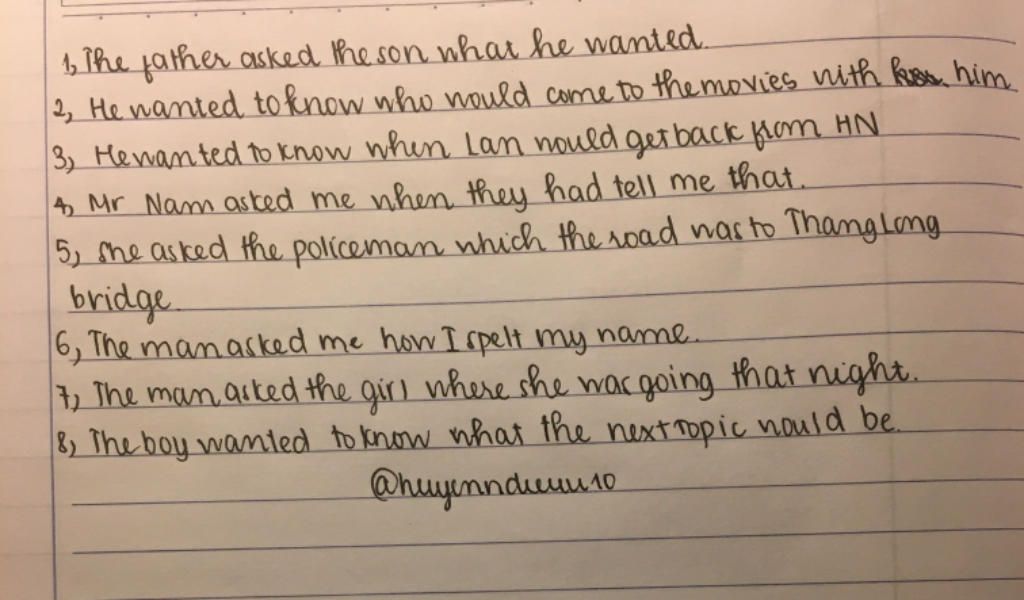 1, The father asked the son what he wanted.
2, He wanted to know who would come to the movies with him
3, He wanted to know when Lan would get back from HN
4, Mr Nam asked me when they had tell me that.
5, she asked the policeman which the road was to Thang Long
bridge.
6, The man asked me how I spelt my name.
7, The man asked the girl where she was going that night.
8, The boy wanted to know what the next topic would be.
@huyenndieuu10